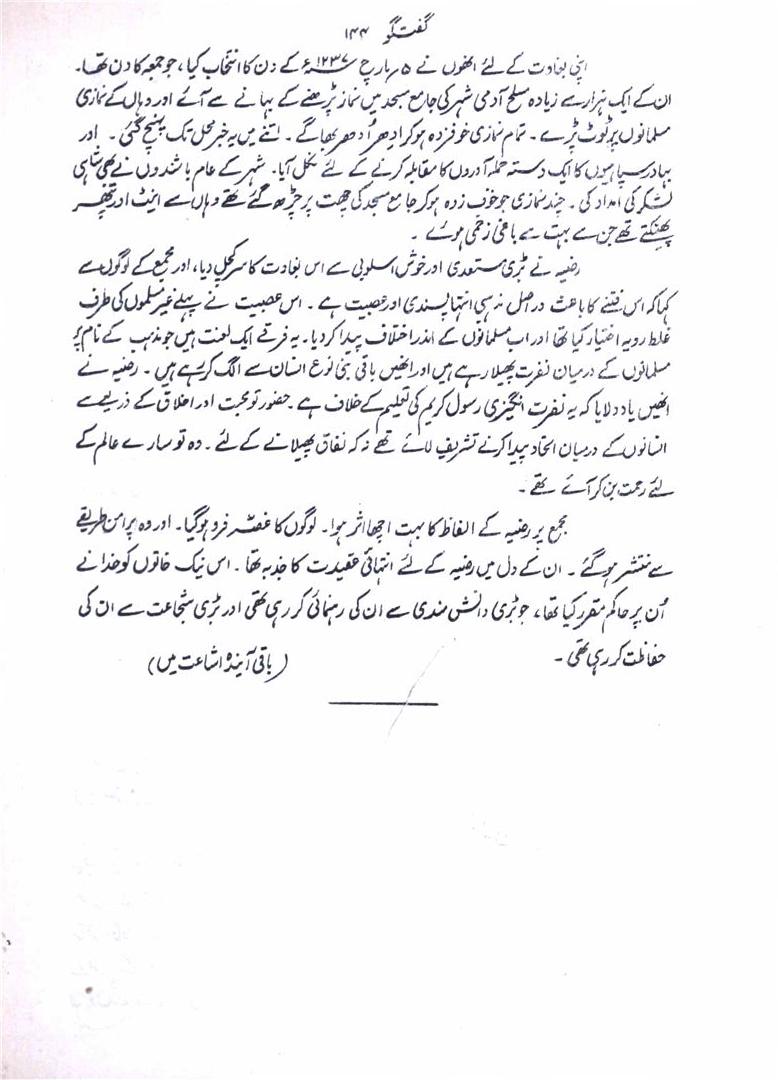 گفتگو ۱۴۴
اپنی بغاوت کے لئے انھوں نے ۵ مارچ ۱۲۳۷ء کے دن کا انتخاب کیا، جو جمعہ کا دن تھا۔
ان کے ایک ہزار سے زیادہ مسلح آدمی شہر کی جامع مسجد میں نماز پڑھنے کے بہانے سے آئے اور وہاں کے نمازی
مسلمانوں پر ٹوٹ پڑے۔ تمام نمازی خوفزدہ ہو کر ادھر اُدھر بھاگے۔ اتنے میں یہ خبر محل تک پہنچ گئی۔ اور
بہادر سپاہیوں کا ایک دستہ حملہ آدروں کا مقابلہ کرنے کے لئے نکل آیا۔ شہر کے عام باشندوں نے بھی شاہی
لشکر کی امداد کی۔ چند نمازی جو خوف زدہ ہو کر جامع مسجد کی چھت پر چڑھ گئے تھے وہاں سے اینٹ اور پتھر
پھینکتے تھے جن سے بہت سے باغی زخمی ہوئے۔
رضیہ نے بڑی مستعدی اور خوش اسلوبی سے اس بغاوت کا سر کچل دیا، اور مجمع کے لوگوں سے
کہا کہ اس فتنے کا باعث دراصل مذہبی انتہا پسندی اور عصبیت ہے۔ اس عصبیت نے پہلے غیر مسلموں کی طرف
غلط رویہ اختیار کیا تھا اور اب مسلمانوں کے اندر اختلاف پیدا کر دیا۔ یہ فرقے ایک لعنت ہیں جو مذہب کے نام پر
مسلمانوں کے درمیان نفرت پھیلا رہے ہیں اور انھیں باقی بنی نوع انسان سے الگ کر رہے ہیں۔ رضیہ نے
انھیں یاد دلایا کہ یہ نفرت انگیزی رسول کریم کی تعلیم کے خلاف ہے۔ حضور تو محبت اور اخلاق کے ذریعے سے
انسانوں کے درمیان اتحاد پیدا کرنے تشریف لائے تھے نہ کہ نفاق پھیلانے کے لئے۔ وہ تو سارے عالم کے
لئے رحمت بن کر آئے تھے۔
مجمع پر رضیہ کے الفاظ کا بہت اچھا اثر ہوا۔ لوگوں کا غصّہ فرو ہو گیا۔ اور وہ پر امن طریقے
سے منتشر ہو گئے۔ ان کے دل میں رضیہ کے لئے انتہائی عقیدت کا جذبہ تھا۔ اس نیک خاتون کو خدا نے
اُن پر حاکم مقرر کیا تھا، جو بڑی دانش مندی سے ان کی رہنمائی کر رہی تھی اور بڑی شجاعت سے ان کی
حفاظت کر رہی تھی۔ (باقی آیندہ اشاعت میں)